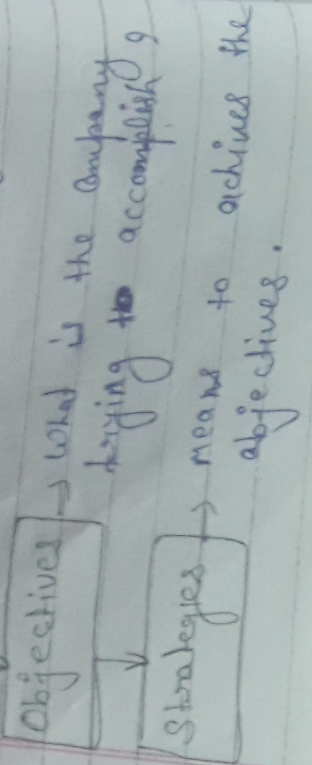 Objectives → What is the company
trying to accomplish ?
Strategies → means to achives the
abjectives.